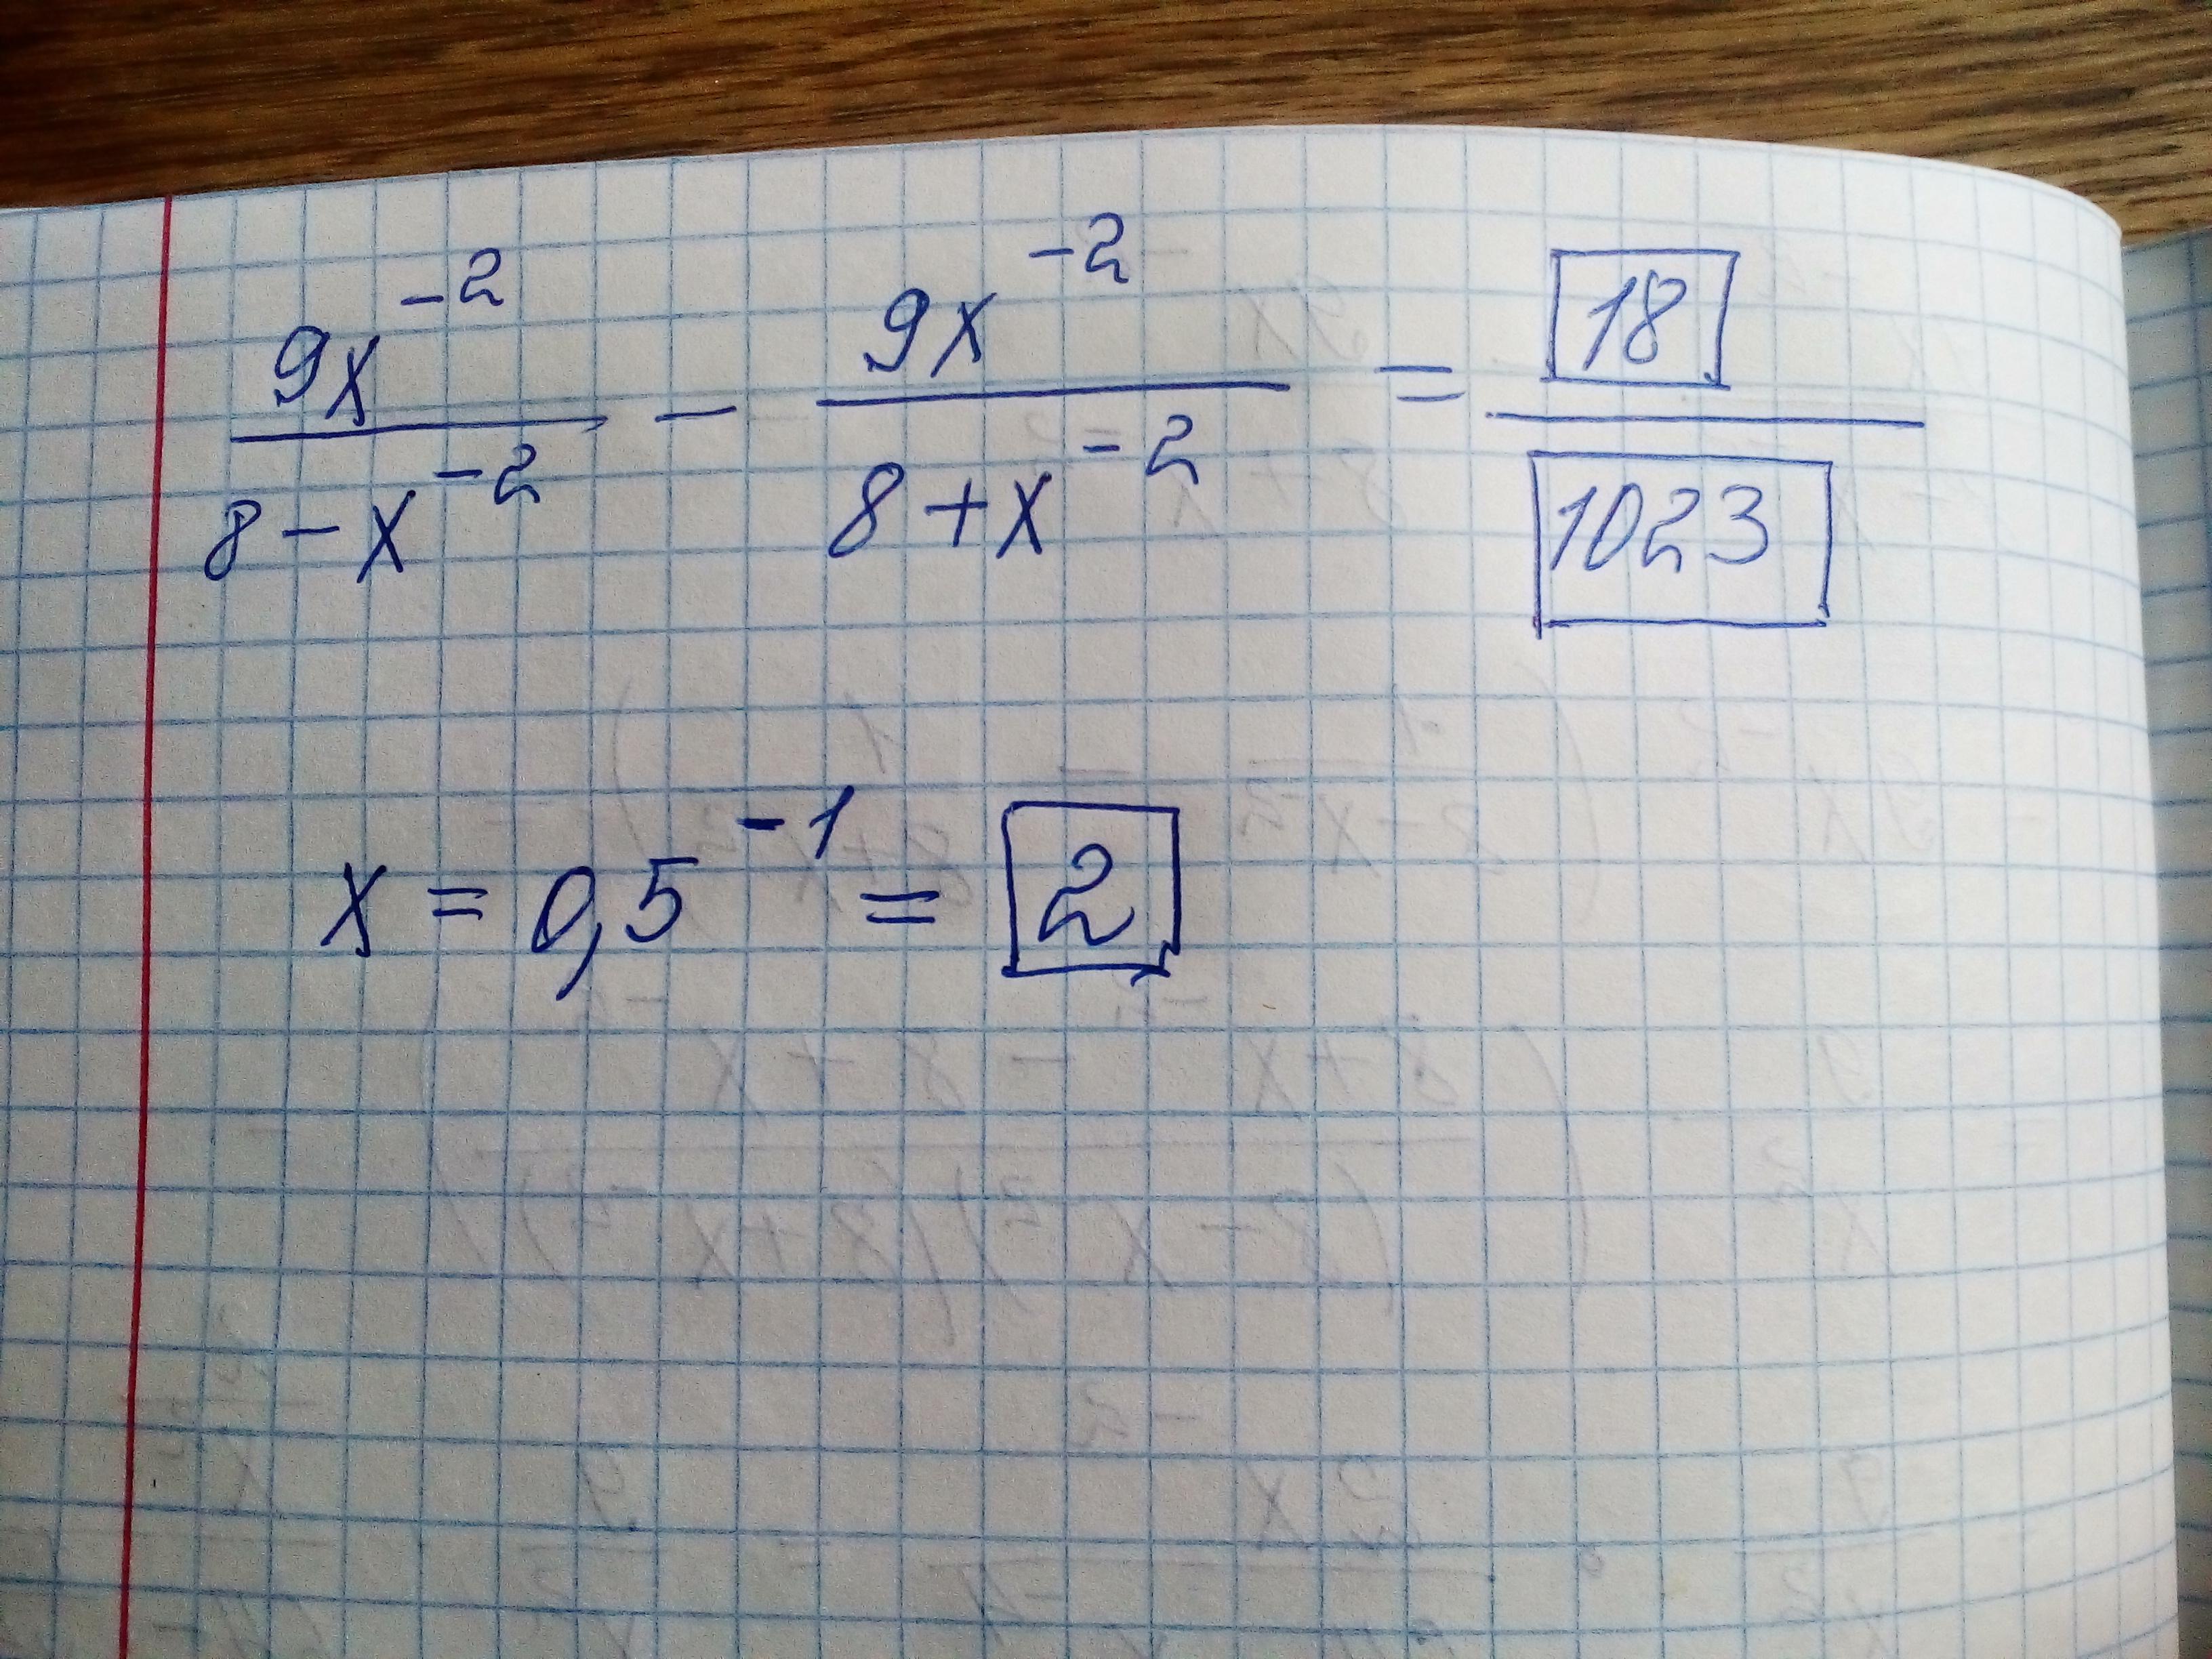 9x⁻² / 8 - x⁻² - 9x⁻² / 8 + x⁻² = 18 / 1023
x = 0,5⁻¹ = 2